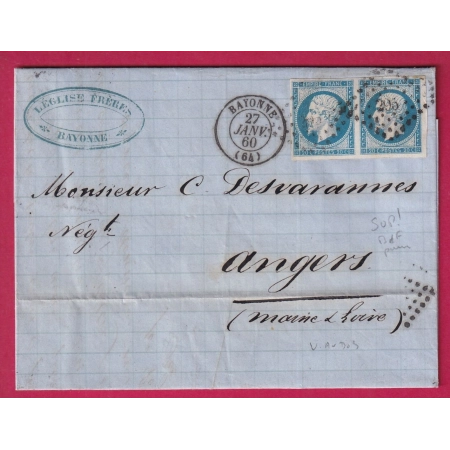 LÉGLISE FRÈRES
BAYONNE
BAYONNE
27
JANV.
60
(64)
EMPIRE FRANC.
EMPIRE FRANC.
20 C. POSTES 20 C.
20 C. POSTES 20 C.
Monsieur C. Desvarannes
Négt.
Angers
(Maine & Loire)
Sup!
BdF